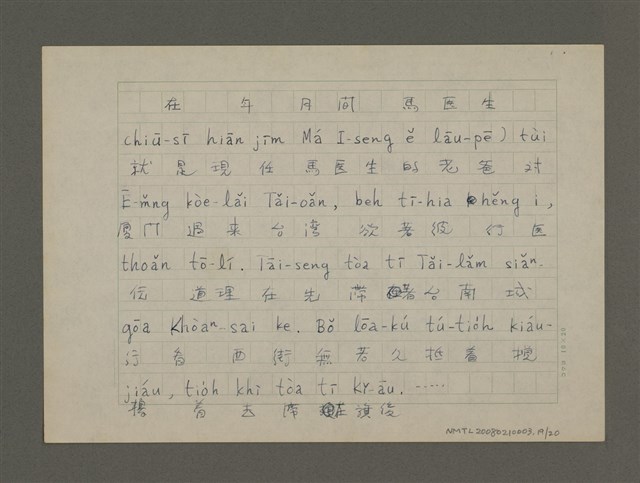 在 午 月間 馬医生
chiū-sī hiān jīm Má I-seng ě lāu-pē) tùi
就是現任馬医生的老爸对
Ē-mn̂g kòe-lǎi Tǎi-oǎn, beh tī-hia hěng i,
厦门過來台湾欲著彼行医
thoǎn tō-lí. Tāi-seng tòa tī Tǎi-lǎm siǎⁿ-
伝道理在先滞著台南城
gōa Khòaⁿ-sai ke. Bǒ lōa-kú tú-tio̍h kiáu-
行看西街無若久抵着攪
jiáu, tio̍h khì tòa tī Kǐ-āu. ……
擾着去滞在旗後
NMTL20080210003.19/20